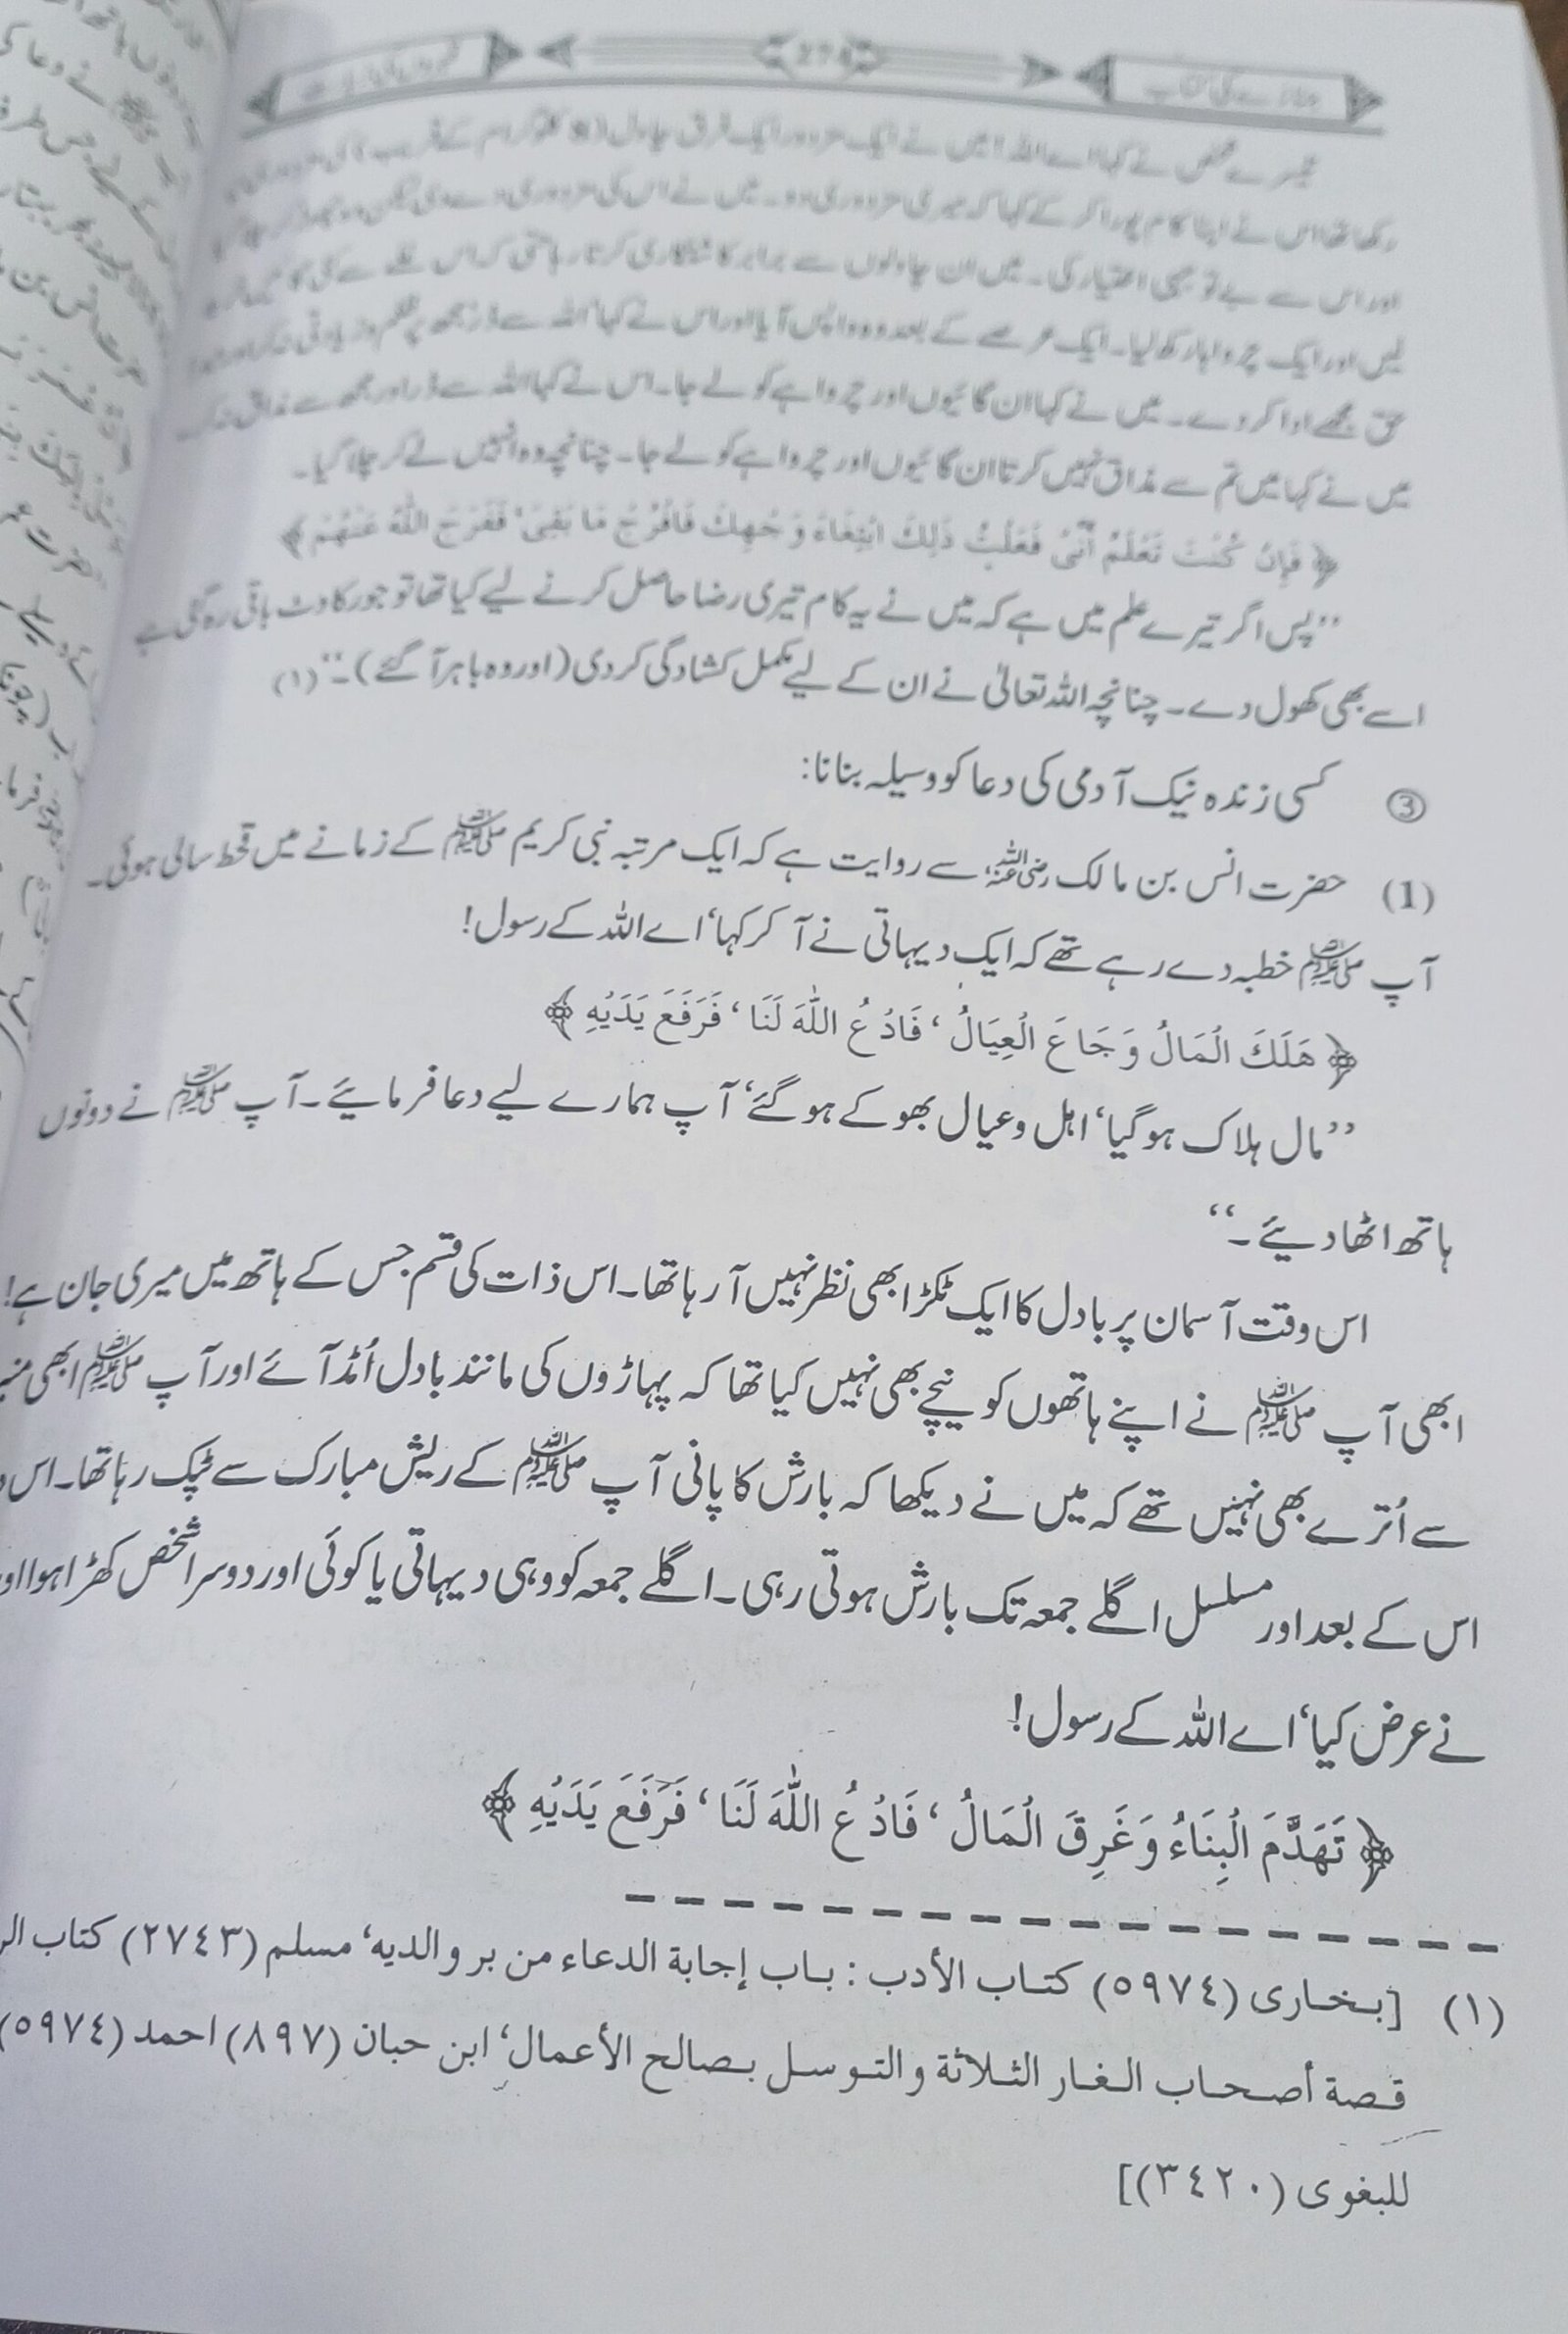 274
جنازے کی کتاب
تیسرے شخص نے کہا اے اللہ! میں نے ایک مزدور ایک فرق چاول
رکھا تھا اس نے اپنا کام پورا کر کے کہا کہ میری مزدوری دو۔ میں نے اس کی مزدوری دے دی لیکن وہ چھوڑ کر چلا گیا
اور اس سے بے توجہی اختیار کی۔ میں ان چاولوں سے برابر کاشتکاری کرتا رہا حتی کہ اس غلے سے کئی گائیں
لیں اور ایک چرواہا رکھ لیا۔ ایک عرصے کے بعد وہ واپس آیا اور اس نے کہا‘ اللہ سے ڈر مجھ پر ظلم و زیادتی نہ کر اور میرا
حق مجھے ادا کر دے۔ میں نے کہا ان گائیوں اور چرواہے کو لے جا۔ اس نے کہا اللہ سے ڈر اور مجھ سے مذاق نہ کر۔
میں نے کہا میں تم سے مذاق نہیں کرتا ان گائیوں اور چرواہے کو لے جا۔ چنانچہ وہ انہیں لے کر چلا گیا۔
﴿ فَإِنْ كُنْتَ تَعْلَمُ أَنِّي فَعَلْتُ ذَلِكَ ابْتِغَاءَ وَجْهِكَ فَافْرُجْ مَا بَقِيَ‘ فَفَرَجَ اللّٰهُ عَنْهُمْ ﴾
’’پس اگر تیرے علم میں ہے کہ میں نے یہ کام تیری رضا حاصل کرنے لیے کیا تھا تو جو رکاوٹ باقی رہ گئی ہے
اسے بھی کھول دے۔ چنانچہ اللہ تعالیٰ نے ان کے لیے مکمل کشادگی کر دی (اور وہ باہر آ گئے)۔‘‘ (۱)
③ کسی زندہ نیک آدمی کی دعا کو وسیلہ بنانا:
(1) حضرت انس بن مالک رضی اللہ عنہ سے روایت ہے کہ ایک مرتبہ نبی کریم ﷺ کے زمانے میں قحط سالی ہوئی۔
آپ ﷺ خطبہ دے رہے تھے کہ ایک دیہاتی نے آ کر کہا‘ اے اللہ کے رسول!
﴿ هَلَكَ الْمَالُ وَجَاعَ الْعِيَالُ‘ فَادْعُ اللّٰهَ لَنَا‘ فَرَفَعَ يَدَيْهِ ﴾
’’مال ہلاک ہو گیا‘ اہل و عیال بھوکے ہو گئے‘ آپ ہمارے لیے دعا فرمائیے۔ آپ ﷺ نے دونوں
ہاتھ اٹھا دیئے۔‘‘
اس وقت آسمان پر بادل کا ایک ٹکڑا بھی نظر نہیں آ رہا تھا۔ اس ذات کی قسم جس کے ہاتھ میں میری جان ہے!
ابھی آپ ﷺ نے اپنے ہاتھوں کو نیچے بھی نہیں کیا تھا کہ پہاڑوں کی مانند بادل اُمڈ آئے اور آپ ﷺ ابھی
سے اُترے بھی نہیں تھے کہ میں نے دیکھا کہ بارش کا پانی آپ ﷺ کے ریش مبارک سے ٹپک رہا تھا۔ اس
اس کے بعد اور مسلسل اگلے جمعہ تک بارش ہوتی رہی۔ اگلے جمعہ کو وہی دیہاتی یا کوئی اور دوسرا شخص کھڑا ہوا اور
نے عرض کیا‘ اے اللہ کے رسول!
﴿ تَهَدَّمَ الْبِنَاءُ وَغَرِقَ الْمَالُ‘ فَادْعُ اللّٰهَ لَنَا‘ فَرَفَعَ يَدَيْهِ ﴾
(۱) [بخاری (۵۹۷٤) كتاب الأدب : باب إجابة الدعاء من بر والديه‘ مسلم (۲۷٤۳) كتاب
قصة أصحاب الغار الثلاثة والتوسل بصالح الأعمال‘ ابن حبان (۸۹۷) احمد (۵۹۷٤)
للبغوى (۳٤۲۰)]